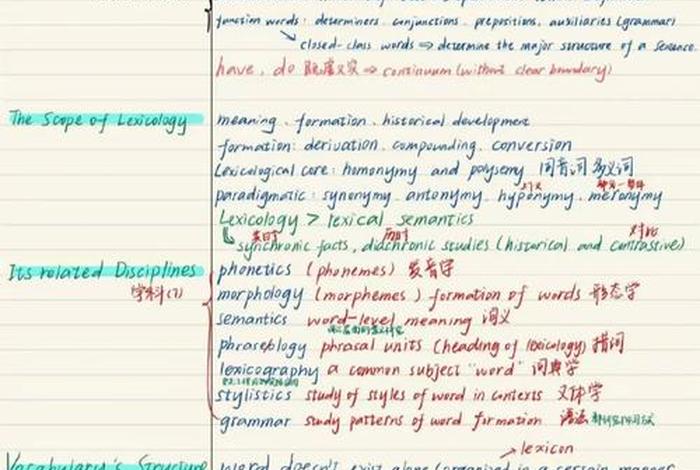 function words: determiners, conjunctions, prepositions, auxiliaries (grammar)
closed-class words ⇒ determine the major structure of a sentence.
have, do 既虚又实 ⇒ continuum (without clear boundary)
The Scope of Lexicology
meaning、formation、historical development
formation: derivation、compounding、conversion
Lexicological core: homonymy and polysemy 同音词 多义词
上下义
部分—整体
paradigmatic: synonymy、antonymy、hyponymy、meronymy
Lexicology > lexical semantics
共时 历时 对比
synchronic facts, diachronic studies (historical and contrastive)
Its related Disciplines
学科(7)
phonetics (phonemes) 发音学
morphology (morphemes) formation of words 形态学
semantics word-level meaning 词义
phraseology phrasal units (heading of lexicology) 措词
lexicography a common subject "word" 词典学
stylistics study of styles of word in contexts 文体学
grammar study patterns of word formation 语法
lexicon
Vocabulary's Structure
word doesn't exist alone (organized in a certain manner